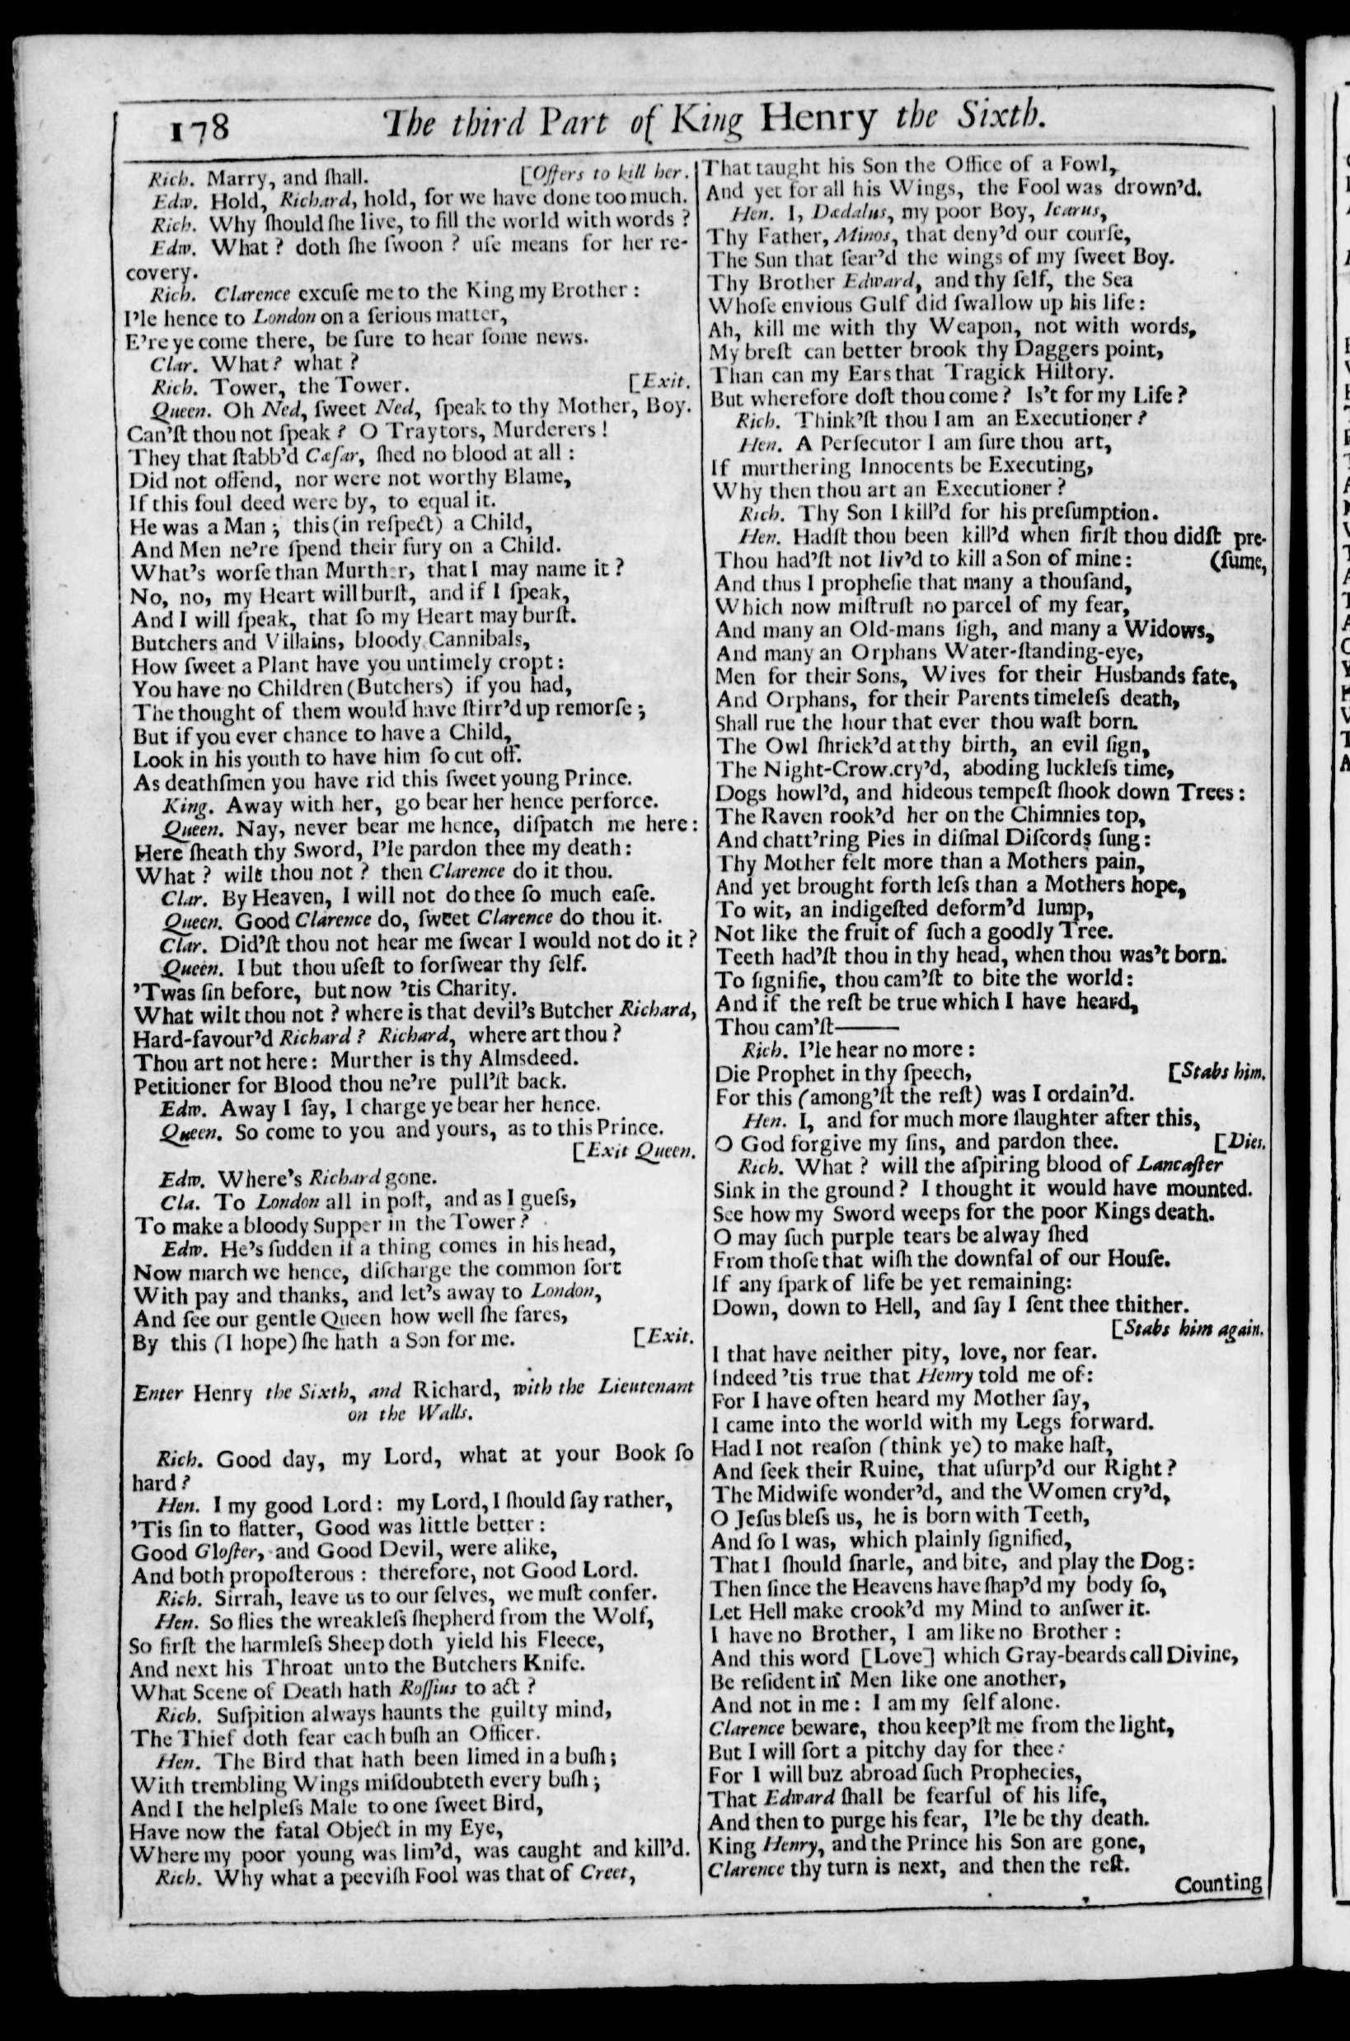 178
The third Part of King Henry the Sixth.
Rich. Marry, and ſhall. [Offers to kill her.
Edw. Hold, Richard, hold, for we have done too much.
Rich. Why ſhould ſhe live, to fill the world with words?
Edw. What? doth ſhe ſwoon? uſe means for her re-
covery.
Rich. Clarence excuſe me to the King my Brother:
I'le hence to London on a ſerious matter,
E're ye come there, be ſure to hear ſome news.
Clar. What? what?
Rich. Tower, the Tower. [Exit.
Queen. Oh Ned, ſweet Ned, ſpeak to thy Mother, Boy.
Can'ſt thou not ſpeak? O Traytors, Murderers!
They that ſtabb'd Cæſar, ſhed no blood at all:
Did not offend, nor were not worthy Blame,
If this foul deed were by, to equal it.
He was a Man; this (in reſpect) a Child,
And Men ne're ſpend their fury on a Child.
What's worſe than Murther, that I may name it?
No, no, my Heart will burſt, and if I ſpeak,
And I will ſpeak, that ſo my Heart may burſt.
Butchers and Villains, bloody Cannibals,
How ſweet a Plant have you untimely cropt:
You have no Children (Butchers) if you had,
The thought of them would have ſtirr'd up remorſe;
But if you ever chance to have a Child,
Look in his youth to have him ſo cut off.
As deathſmen you have rid this ſweet young Prince.
King. Away with her, go bear her hence perforce.
Queen. Nay, never bear me hence, diſpatch me here:
Here ſheath thy Sword, I'le pardon thee my death:
What? wilt thou not? then Clarence do it thou.
Clar. By Heaven, I will not do thee ſo much eaſe.
Queen. Good Clarence do, ſweet Clarence do thou it.
Clar. Did'ſt thou not hear me ſwear I would not do it?
Queen. I but thou uſeſt to forſwear thy ſelf.
'Twas ſin before, but now 'tis Charity.
What wilt thou not? where is that devil's Butcher Richard,
Hard-favour'd Richard? Richard, where art thou?
Thou art not here: Murther is thy Almsdeed.
Petitioner for Blood thou ne're pull'ſt back.
Edw. Away I ſay, I charge ye bear her hence.
Queen. So come to you and yours, as to this Prince.
[Exit Queen.
Edw. Where's Richard gone.
Cla. To London all in poſt, and as I gueſs,
To make a bloody Supper in the Tower?
Edw. He's ſudden if a thing comes in his head,
Now march we hence, diſcharge the common ſort
With pay and thanks, and let's away to London,
And ſee our gentle Queen how well ſhe fares,
By this (I hope) ſhe hath a Son for me. [Exit.
Enter Henry the Sixth, and Richard, with the Lieutenant
on the Walls.
Rich. Good day, my Lord, what at your Book ſo
hard?
Hen. I my good Lord: my Lord, I ſhould ſay rather,
'Tis ſin to flatter, Good was little better:
Good Gloſter, and Good Devil, were alike,
And both propoſterous: therefore, not Good Lord.
Rich. Sirrah, leave us to our ſelves, we muſt confer.
Hen. So flies the wreakleſs ſhepherd from the Wolf,
So firſt the harmleſs Sheep doth yield his Fleece,
And next his Throat unto the Butchers Knife.
What Scene of Death hath Roſſius to act?
Rich. Suſpition always haunts the guilty mind,
The Thief doth fear each buſh an Officer.
Hen. The Bird that hath been limed in a buſh;
With trembling Wings miſdoubteth every buſh;
And I the helpleſs Male to one ſweet Bird,
Have now the fatal Object in my Eye,
Where my poor young was lim'd, was caught and kill'd.
Rich. Why what a peeviſh Fool was that of Creet,
That taught his Son the Office of a Fowl,
And yet for all his Wings, the Fool was drown'd.
Hen. I, Dædalus, my poor Boy, Icarus,
Thy Father, Minos, that deny'd our courſe,
The Sun that ſear'd the wings of my ſweet Boy.
Thy Brother Edward, and thy ſelf, the Sea
Whoſe envious Gulf did ſwallow up his life:
Ah, kill me with thy Weapon, not with words,
My breſt can better brook thy Daggers point,
Than can my Ears that Tragick Hiſtory.
But wherefore doſt thou come? Is't for my Life?
Rich. Think'ſt thou I am an Executioner?
Hen. A Perſecutor I am ſure thou art,
If murthering Innocents be Executing,
Why then thou art an Executioner?
Rich. Thy Son I kill'd for his preſumption.
Hen. Hadſt thou been kill'd when firſt thou didſt pre-
Thou had'ſt not liv'd to kill a Son of mine: (ſume,
And thus I propheſie that many a thouſand,
Which now miſtruſt no parcel of my fear,
And many an Old-mans ſigh, and many a Widows,
And many an Orphans Water-ſtanding-eye,
Men for their Sons, Wives for their Husbands fate,
And Orphans, for their Parents timeleſs death,
Shall rue the hour that ever thou waſt born.
The Owl ſhrick'd at thy birth, an evil ſign,
The Night-Crow cry'd, aboding luckleſs time,
Dogs howl'd, and hideous tempeſt ſhook down Trees:
The Raven rook'd her on the Chimnies top,
And chatt'ring Pies in diſmal Diſcords ſung:
Thy Mother felt more than a Mothers pain,
And yet brought forth leſs than a Mothers hope,
To wit, an indigeſted deform'd lump,
Not like the fruit of ſuch a goodly Tree.
Teeth had'ſt thou in thy head, when thou was't born.
To ſignifie, thou cam'ſt to bite the world:
And if the reſt be true which I have heard,
Thou cam'ſt———
Rich. I'le hear no more:
Die Prophet in thy ſpeech, [Stabs him.
For this (among'ſt the reſt) was I ordain'd.
Hen. I, and for much more ſlaughter after this,
O God forgive my ſins, and pardon thee. [Dies.
Rich. What? will the aſpiring blood of Lancaſter
Sink in the ground? I thought it would have mounted.
See how my Sword weeps for the poor Kings death.
O may ſuch purple tears be alway ſhed
From thoſe that wiſh the downfal of our Houſe.
If any ſpark of life be yet remaining:
Down, down to Hell, and ſay I ſent thee thither.
[Stabs him again.
I that have neither pity, love, nor fear.
Indeed 'tis true that Henry told me of:
For I have often heard my Mother ſay,
I came into the world with my Legs forward.
Had I not reaſon (think ye) to make haſt,
And ſeek their Ruine, that uſurp'd our Right?
The Midwife wonder'd, and the Women cry'd,
O Jeſus bleſs us, he is born with Teeth,
And ſo I was, which plainly ſignified,
That I ſhould ſnarle, and bite, and play the Dog:
Then ſince the Heavens have ſhap'd my body ſo,
Let Hell make crook'd my Mind to anſwer it.
I have no Brother, I am like no Brother:
And this word [Love] which Gray-beards call Divine,
Be reſident in Men like one another,
And not in me: I am my ſelf alone.
Clarence beware, thou keep'ſt me from the light,
But I will ſort a pitchy day for thee:
For I will buz abroad ſuch Prophecies,
That Edward ſhall be fearful of his life,
And then to purge his fear, I'le be thy death.
King Henry, and the Prince his Son are gone,
Clarence thy turn is next, and then the reſt.
Counting